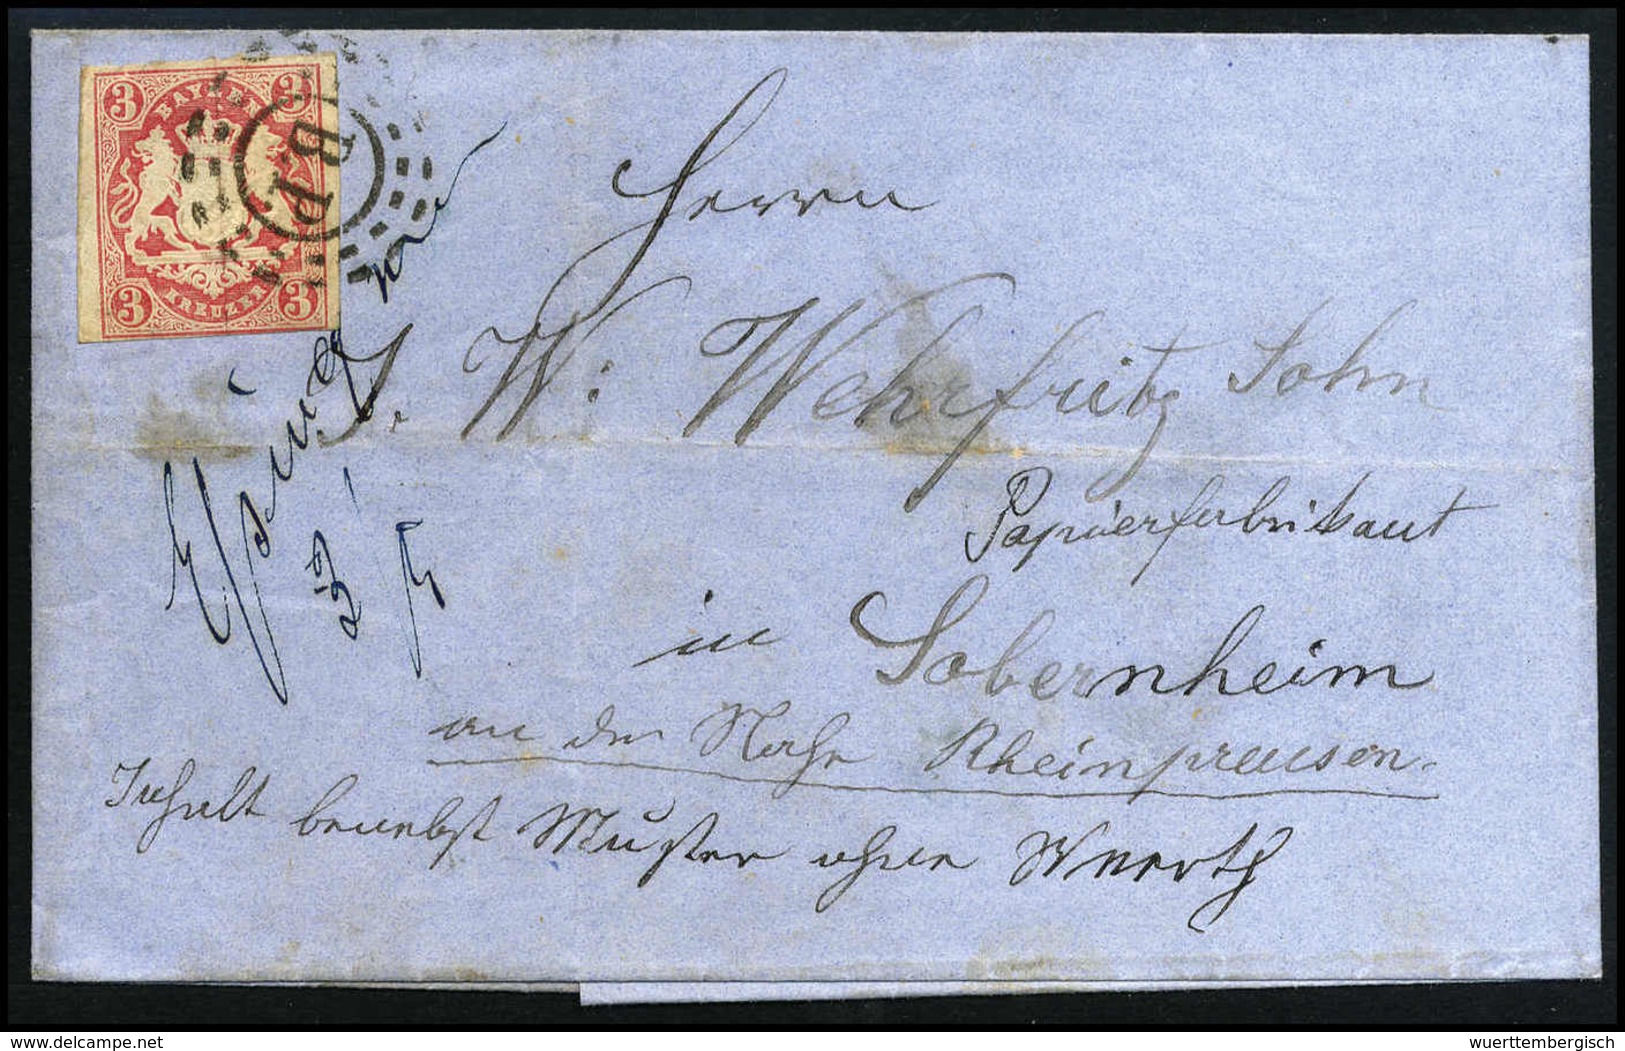 3 BAYERN 3
3 KREUZER 3
B. P.
Herrn
J. W: Wehrfritz Sohn
Papierfabrikant
in Sobernheim
an der Nahe Rheinpreusen.
Inhalt benebst Muster ohne Werth
delcampe.net
wuerttembergisch